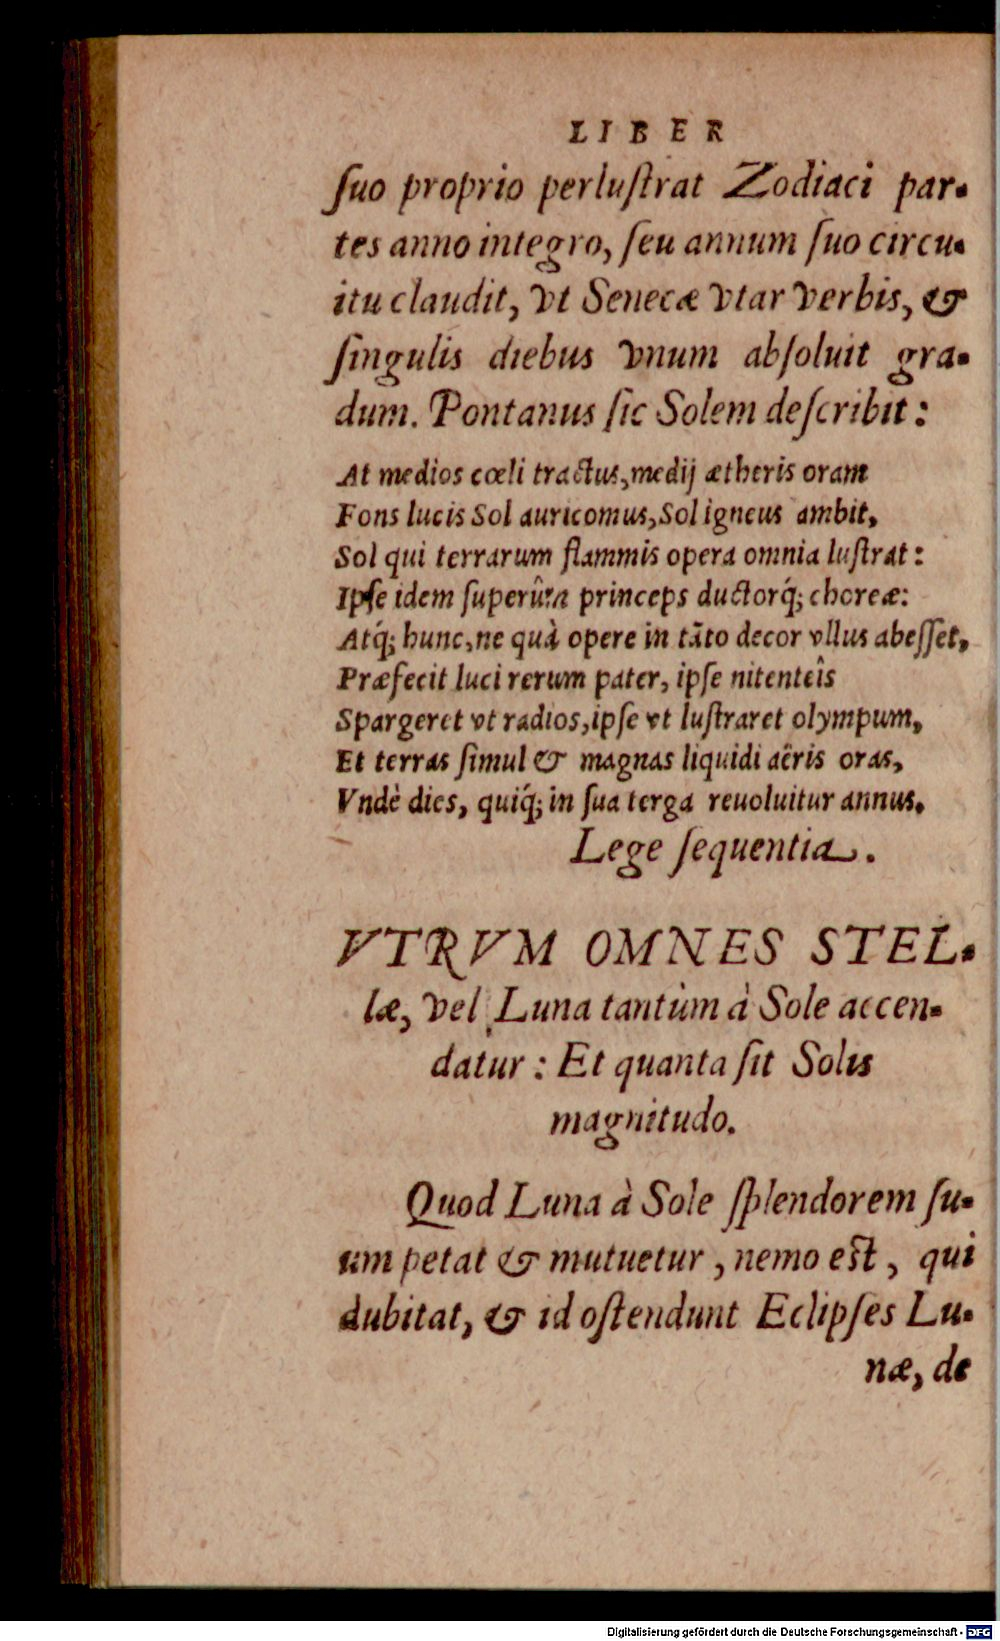 LIBER
ſuo proprio perluſtrat Zodiaci par-
tes anno integro, ſeu annum ſuo circu-
itu claudit, vt Senecæ vtar verbis, &
ſingulis diebus vnum abſoluit gra-
dum. Pontanus ſic Solem deſcribit:
At medios cœli tractus, medij ætheris oram
Fons lucis Sol auricomus, Sol igneus ambit,
Sol qui terrarum flammis opera omnia luſtrat:
Ipſe idem ſuperûm princeps ductorq́; choreæ:
Atq́; hunc, ne quà opere in tāto decor vllus abeſſet,
Præfecit luci rerum pater, ipſe nitenteîs
Spargeret vt radios, ipſe vt luſtraret olympum,
Et terras ſimul & magnas liquidi aëris oras,
Vndè dies, quiq́; in ſua terga reuoluitur annus.
Lege ſequentia.
VTRVM OMNES STEL-
læ, vel Luna tantùm à Sole accen-
datur: Et quanta ſit Solis
magnitudo.
Quod Luna à Sole ſplendorem ſu-
um petat & mutuetur, nemo eſt, qui
dubitat, & id oſtendunt Eclipſes Lu-
næ, de
Digitalisierung gefördert durch die Deutsche Forschungsgemeinschaft - DFG